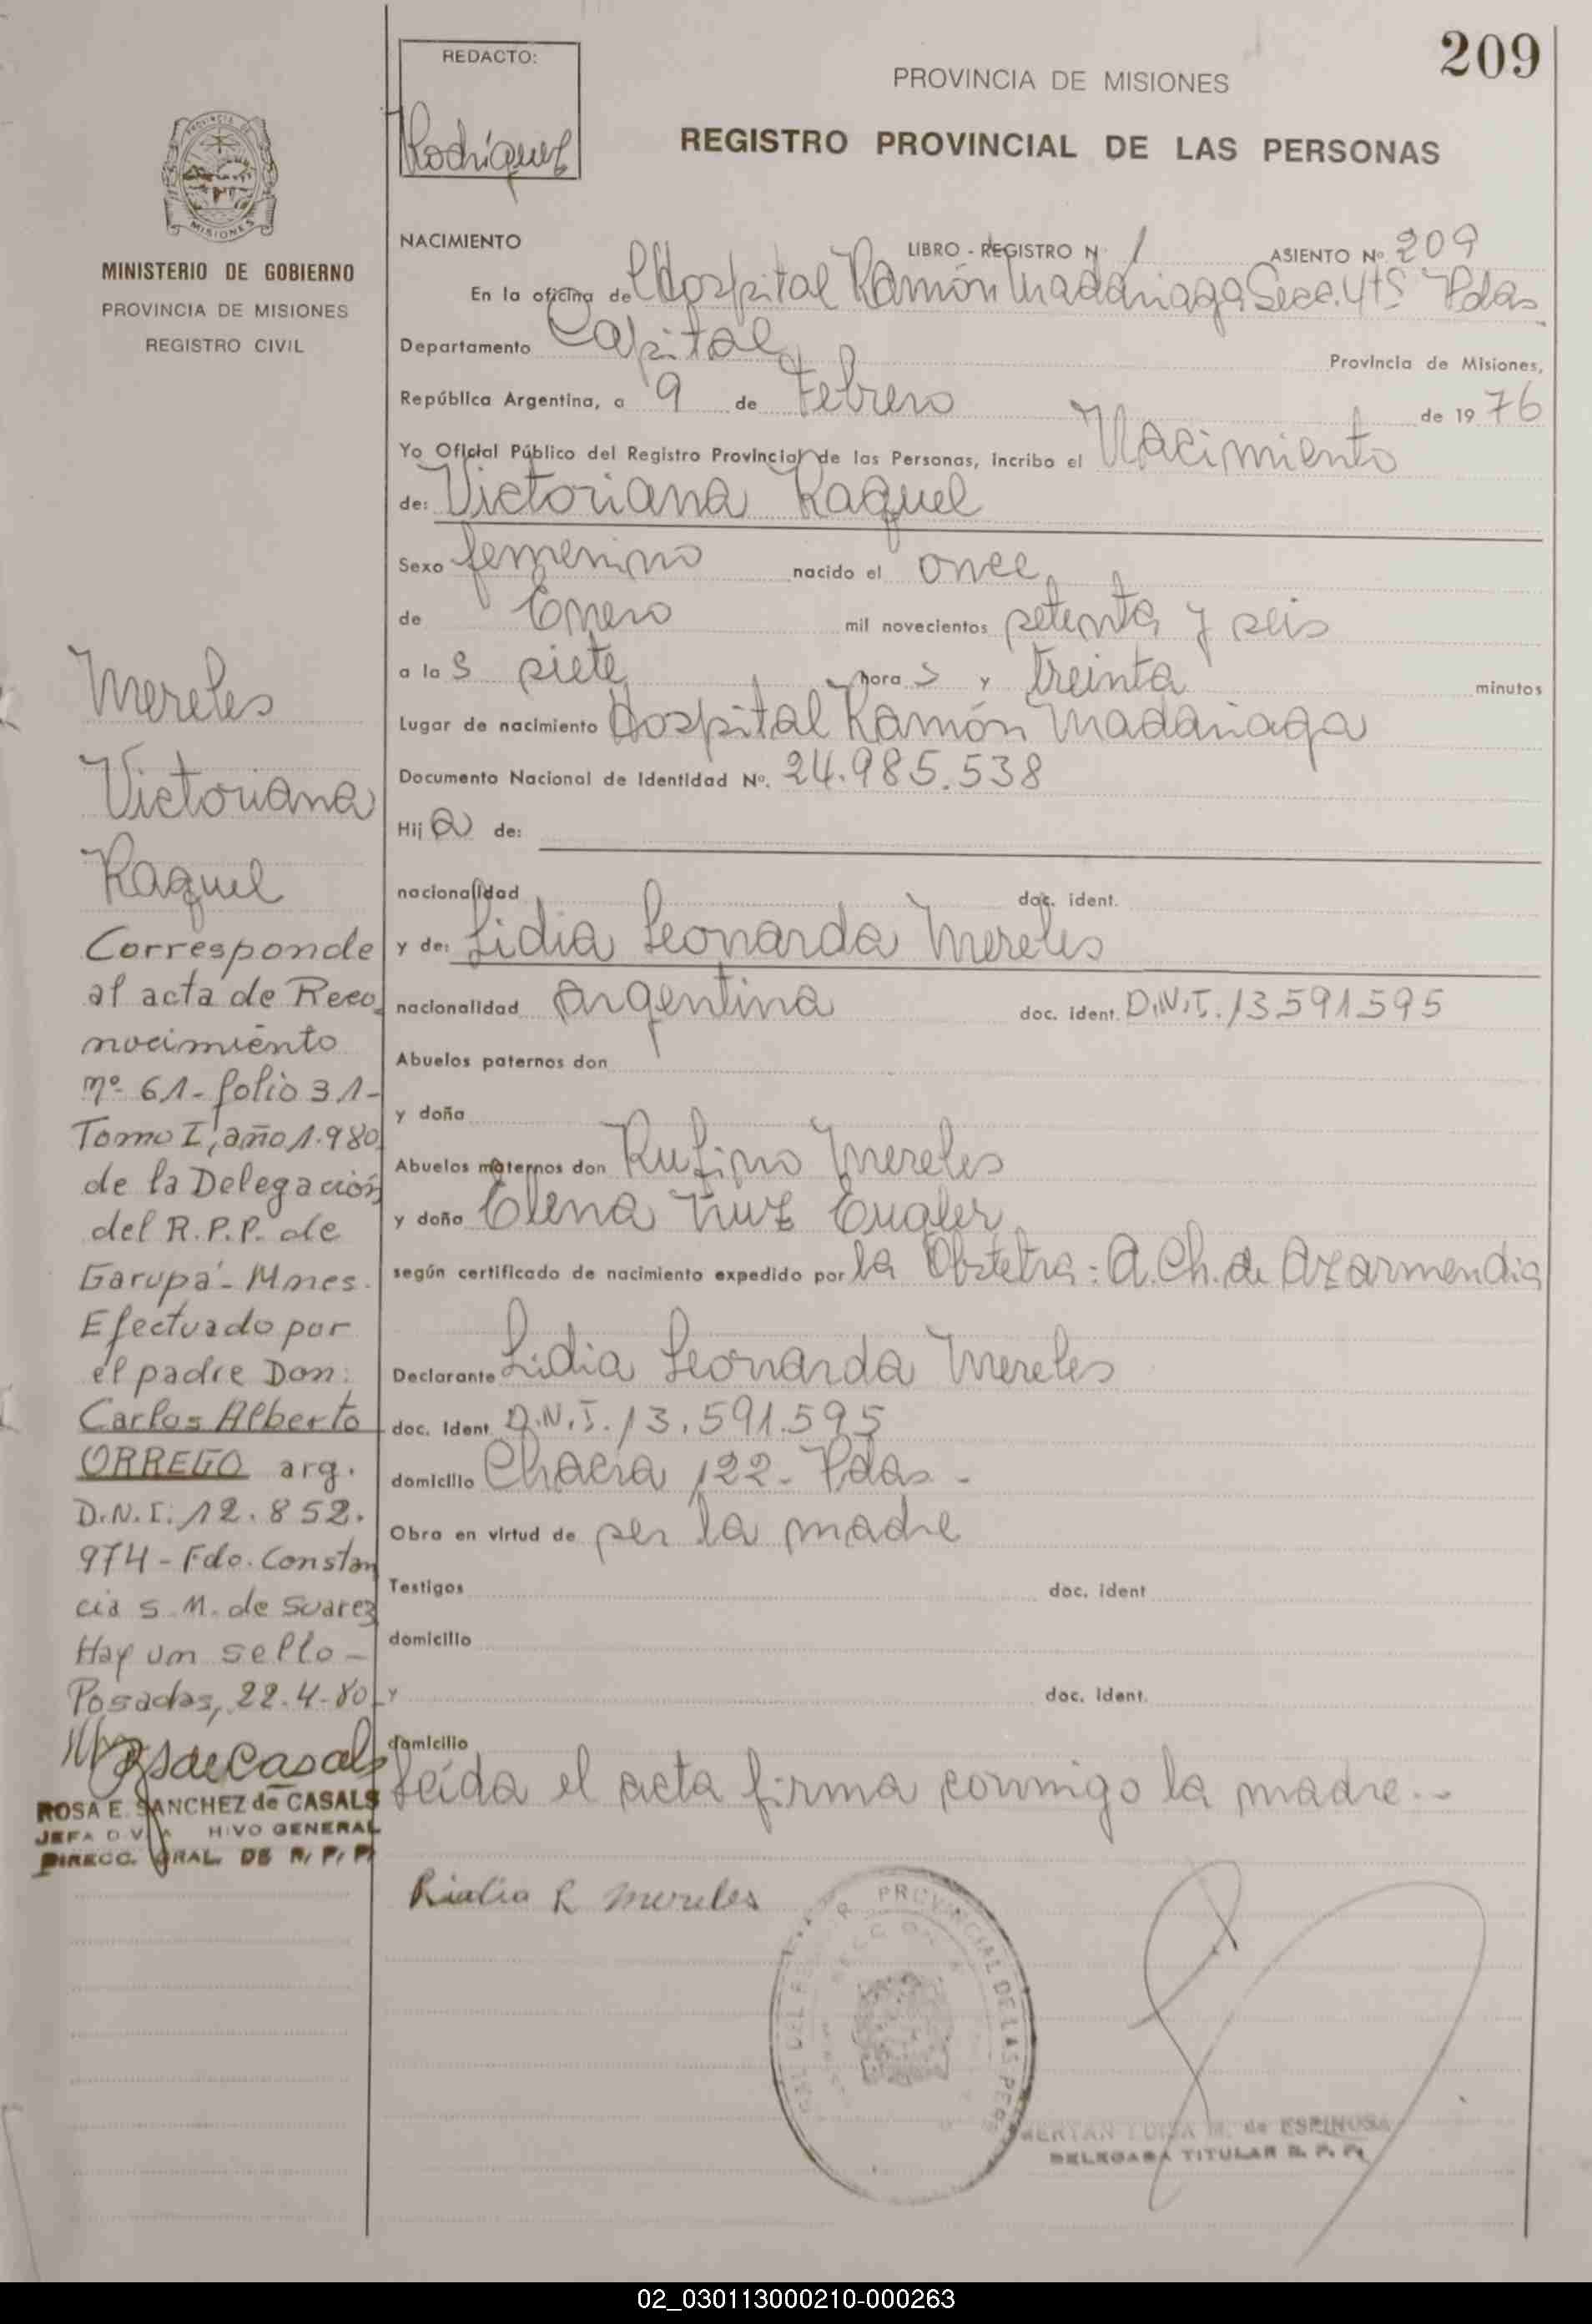 209
REDACTO:
Rodríguez
PROVINCIA DE MISIONES
REGISTRO PROVINCIAL DE LAS PERSONAS
MINISTERIO DE GOBIERNO
PROVINCIA DE MISIONES
REGISTRO CIVIL
NACIMIENTO LIBRO - REGISTRO Nº 1 ASIENTO Nº 209
En la oficina del Hospital Ramón Madariaga Secc. 4ta Pdas
Departamento Capital Provincia de Misiones,
República Argentina, a 9 de Febrero de 1976
Yo Oficial Público del Registro Provincial de las Personas, incribo el Nacimiento
de: Victoriana Raquel
Sexo femenino nacido el once
de Enero mil novecientos setenta y seis
a las siete horas y treinta minutos
Lugar de nacimiento Hospital Ramón Madariaga
Documento Nacional de Identidad Nº. 24.985.538
Hija de:
nacionalidad doc. ident.
y de: Lidia Leonarda Mereles
nacionalidad argentina doc. ident. D.N.I. 13.591.595
Abuelos paternos don
y doña
Abuelos maternos don Rufino Mereles
y doña Elena Kruz Eugler
según certificado de nacimiento expedido por la Obstetra: A. Ch. de Azarmendia
Declarante Lidia Leonarda Mereles
doc. Ident. D.N.I. 13.591.595
domicilio Chacra 122 - Pdas -
Obra en virtud de ser la madre
Testigos doc. ident
domicilio
y doc. ident.
domicilio
leída el acta firma conmigo la madre.-
Mereles
Victoriana
Raquel
Corresponde
al acta de Reco
nocimiento
nº 61 - folio 31 -
Tomo I, año 1.980
de la Delegación
del R.P.P. de
Garupá - Mnes.
Efectuado por
el padre Don:
Carlos Alberto
ORREGO arg.
D.N.I. 12.852.
974 - Fdo. Constan
cia S. M. de Suarez
Hay un sello -
Posadas, 22-4-80
ROSA E. SANCHEZ de CASALS
JEFA DIV. HIVO GENERAL
DIRECC. GRAL. DE R. P. P.
R Mereles
PROVINCIAL DE LAS PERS
LUISA M. de ESPINOSA
DELEGADA TITULAR R. P. P.
02_030113000210-000263